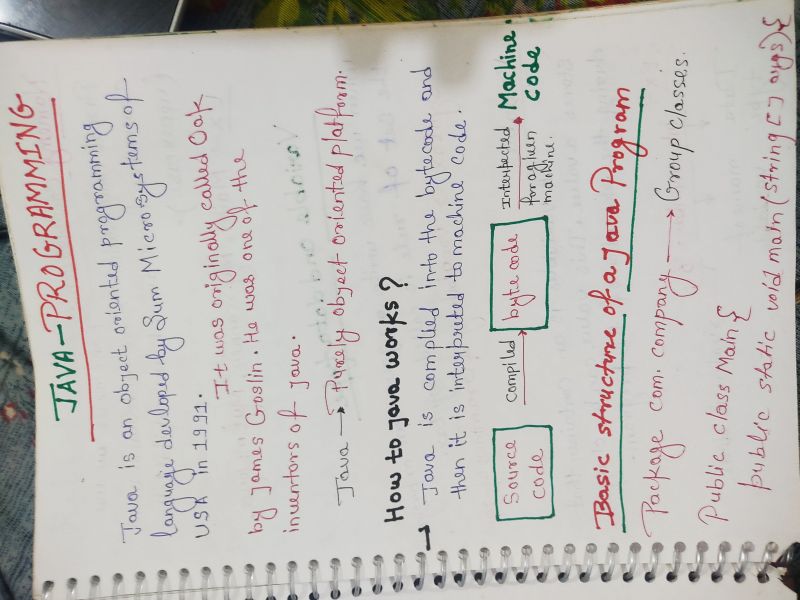 JAVA-PROGRAMMING
Java is an object oriented programming
language devloped by Sum Microsystems of
USA in 1991.
It was originally called Oak
by James Goslin. He was one of the
inventors of java.
Java → Purely object oriented platform.
How to java works?
→ Java is complied into the bytecode and
then it is interpreted to machine code.
Source code
compiled
byte code
Interpected for a given machine.
Machine code
Basic structure of a java Program
Package com.company → Group classes.
Public class Main {
public static void main (string [] args) {